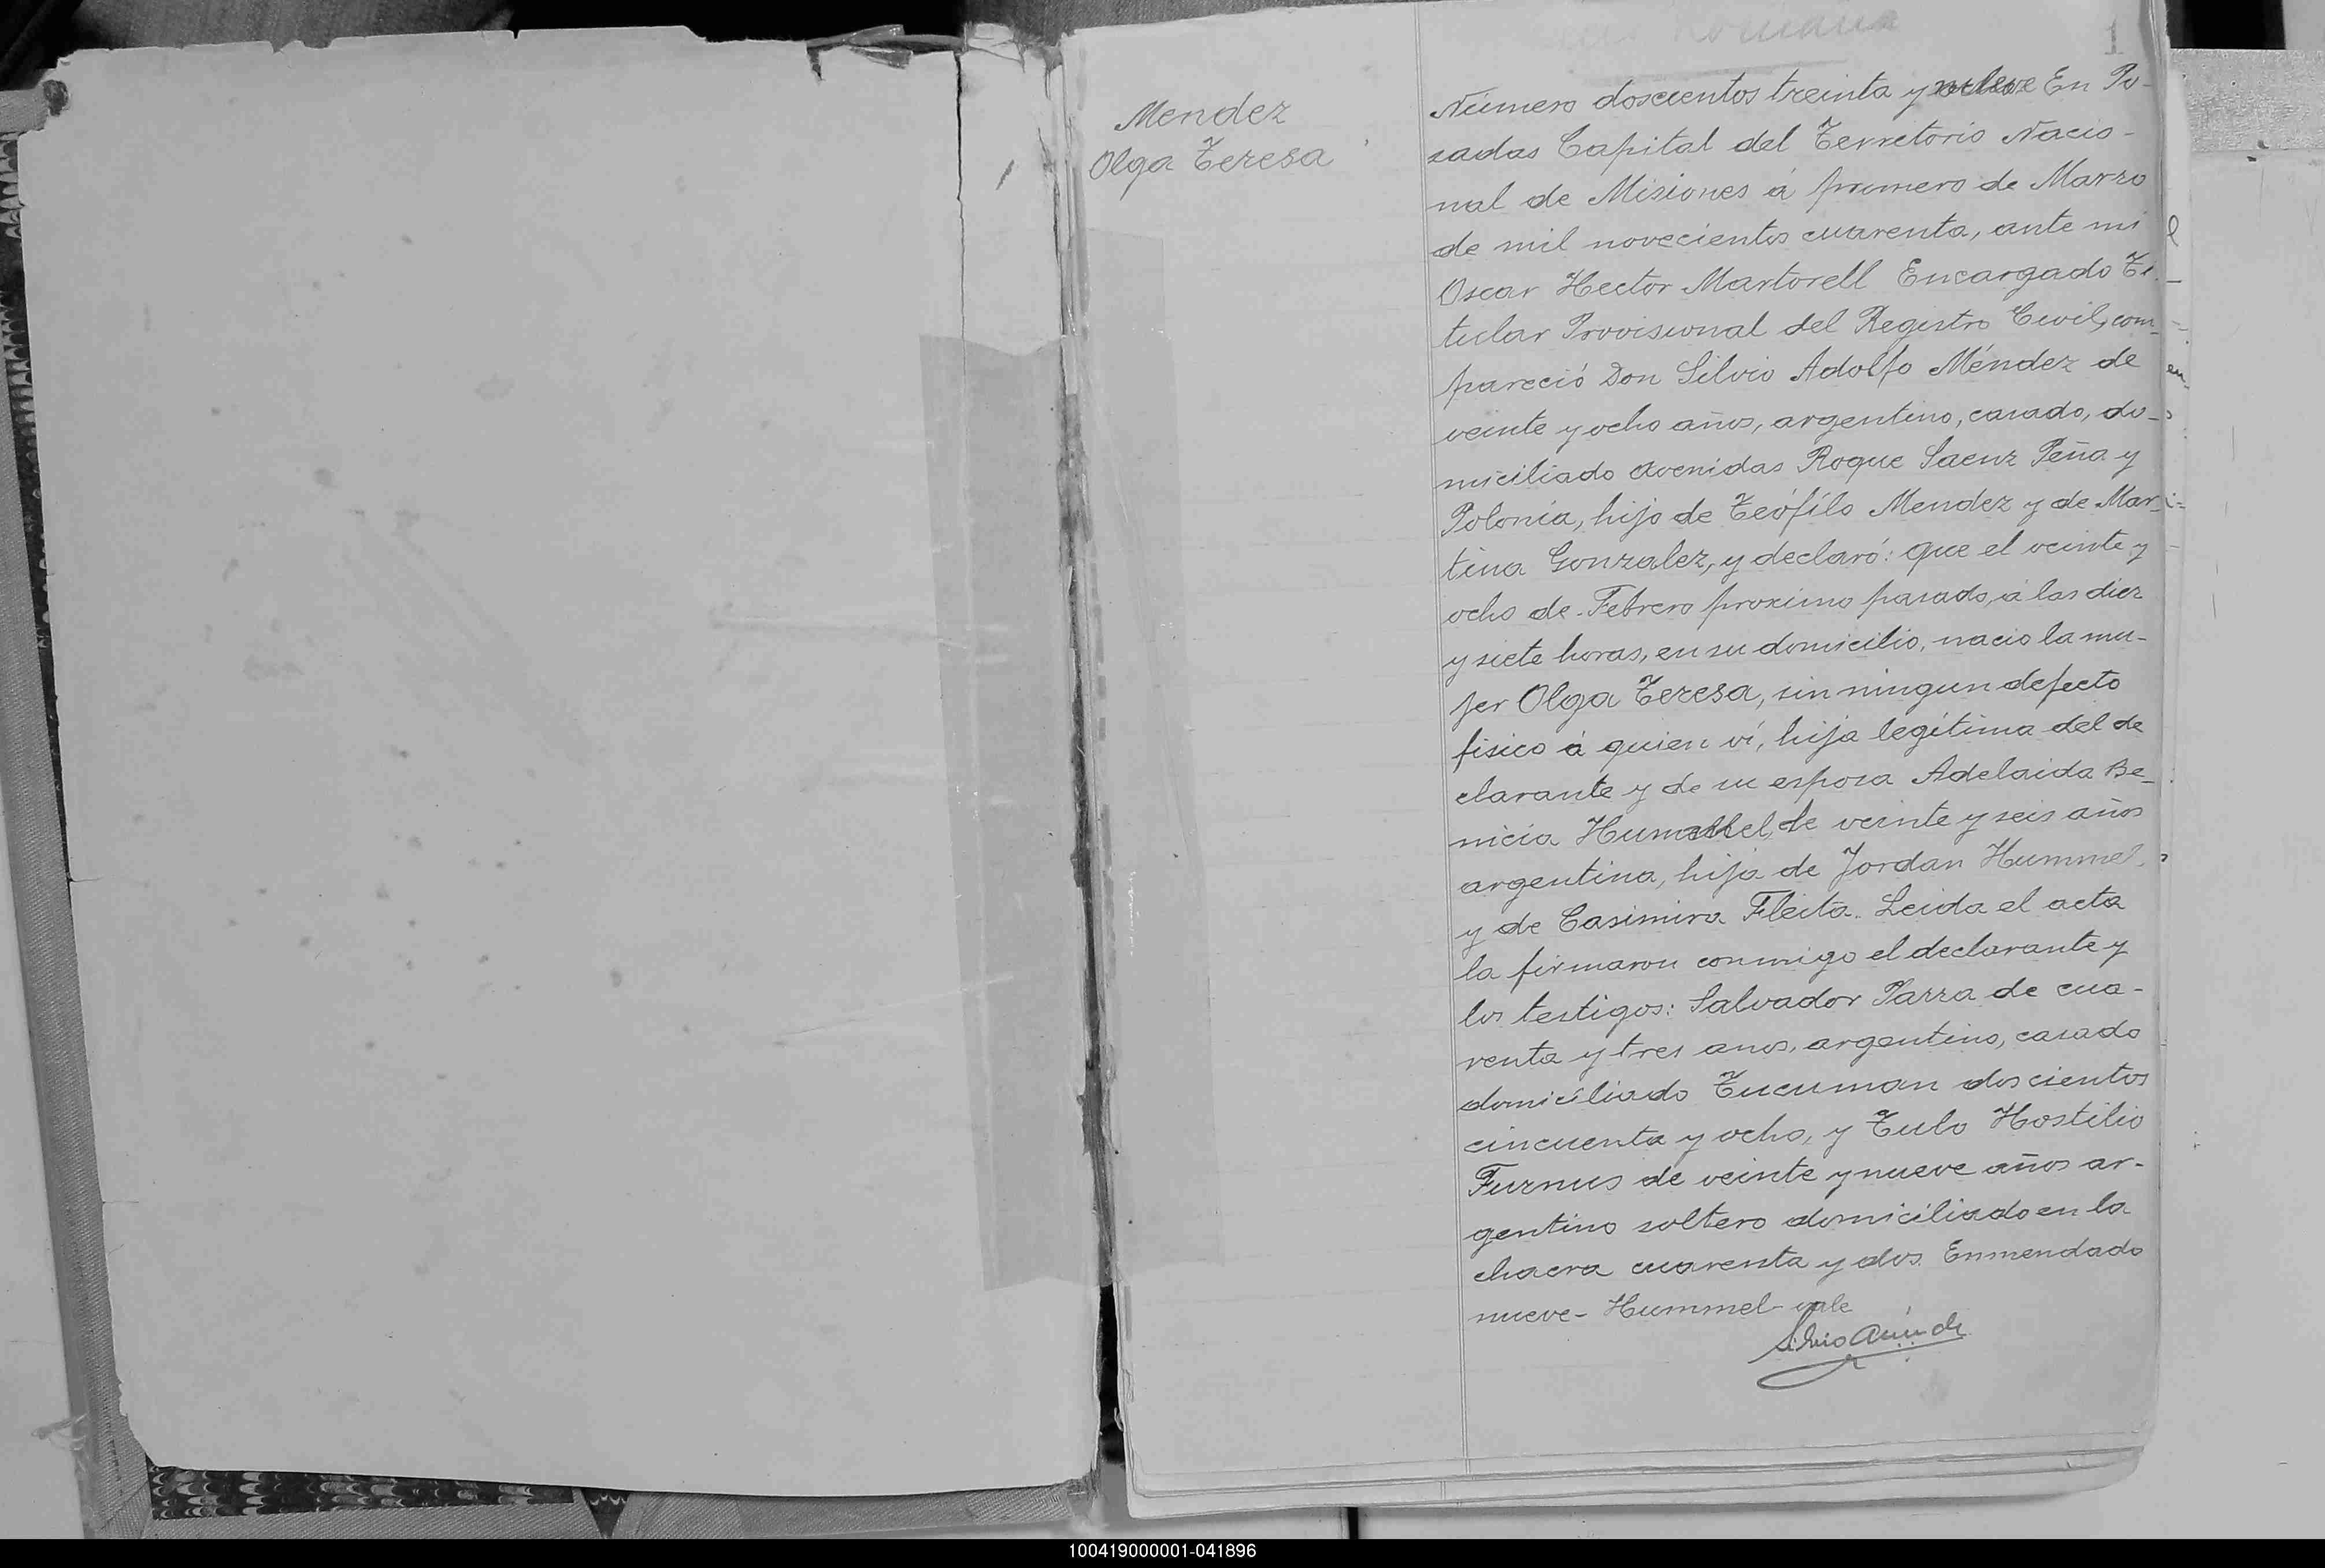 1
Mendez
Olga Teresa
Número doscientos treinta y nueve En Po-
sadas Capital del Territorio Nacio-
nal de Misiones á primero de Marzo
de mil novecientos cuarenta, ante mi
Oscar Hector Martorell Encargado Ti-
tular Provisional del Registro Civil, com-
pareció Don Silvio Adolfo Méndez de
veinte y ocho años, argentino, casado, do-
miciliado avenidas Roque Saenz Peña y
Polonia, hijo de Teófilo Mendez y de Mar-
tina Gonzalez, y declaró: que el veinte y
ocho de Febrero proximo pasado, á las diez
y siete horas, en su domicilio, nacio la mu-
jer Olga Teresa, sin ningun defecto
fisico á quien ví, hija legítima del de
clarante y de su esposa Adelaida Be-
nicia Hummel, de veinte y seis años
argentina, hija de Jordan Hummel
y de Casimira Fleita. Leida el acta
la firmaron conmigo el declarante y
los testigos: Salvador Parra de cua-
renta y tres anos, argentino, casado
domiciliado Tucuman doscientos
cincuenta y ocho, y Tulo Hostilio
Furnus de veinte y nueve años ar-
gentino soltero domiciliado en la
chacra cuarenta y dos. Enmendado
nueve- Hummel- vale
100419000001-041896